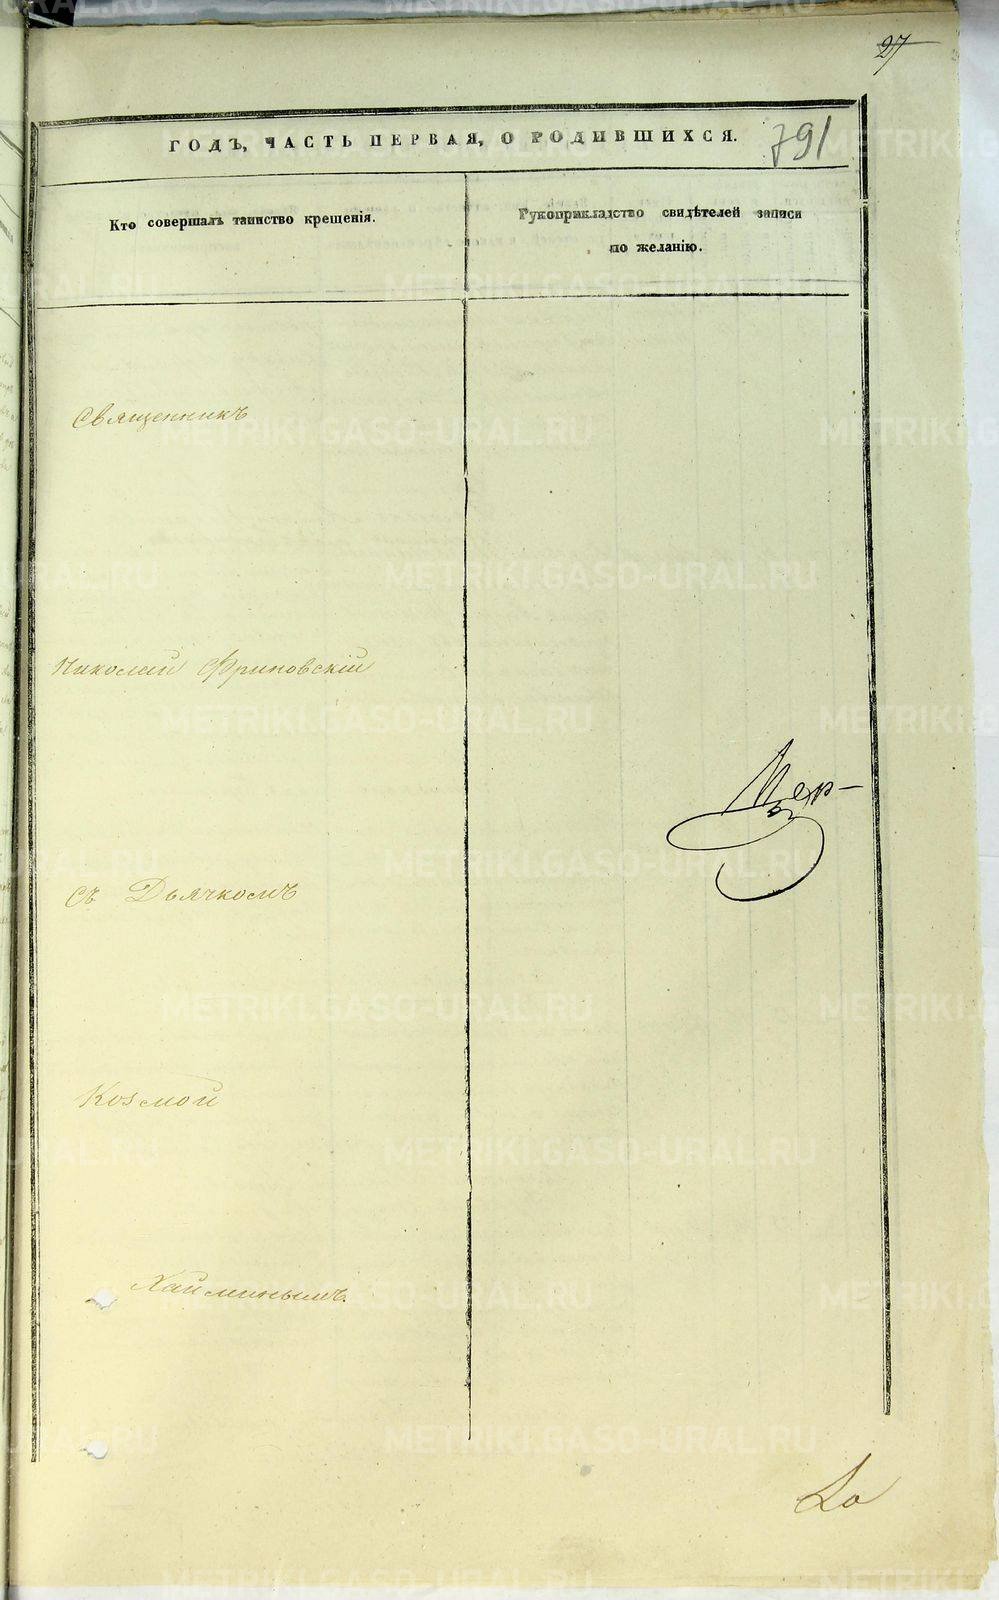 27
ГОДЪ, ЧАСТЬ ПЕРВАЯ, О РОДИВШИХСЯ.
791
Кто совершалъ таинство крещенія.
Рукоприкладство свидѣтелей записи
по желанію.
Священникъ
Николай Фриновскій
съ Дьячкомъ
Козмой
Хайминымъ.
METRIKI.GASO-URAL.RU